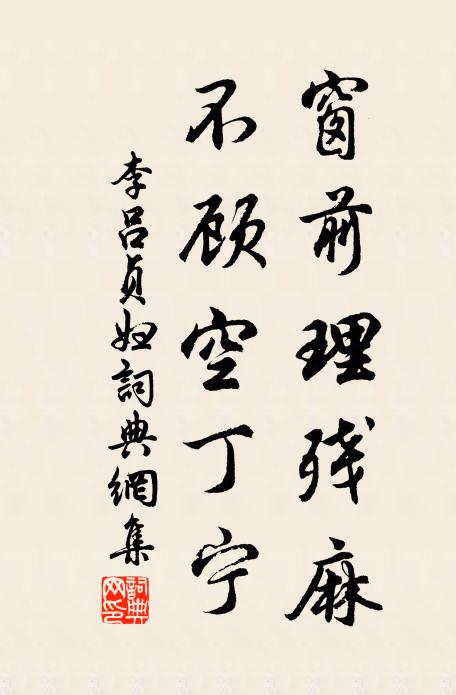 窗前理残麻
不顾空丁宁
李吕贞妇詞典網集
詞典网印